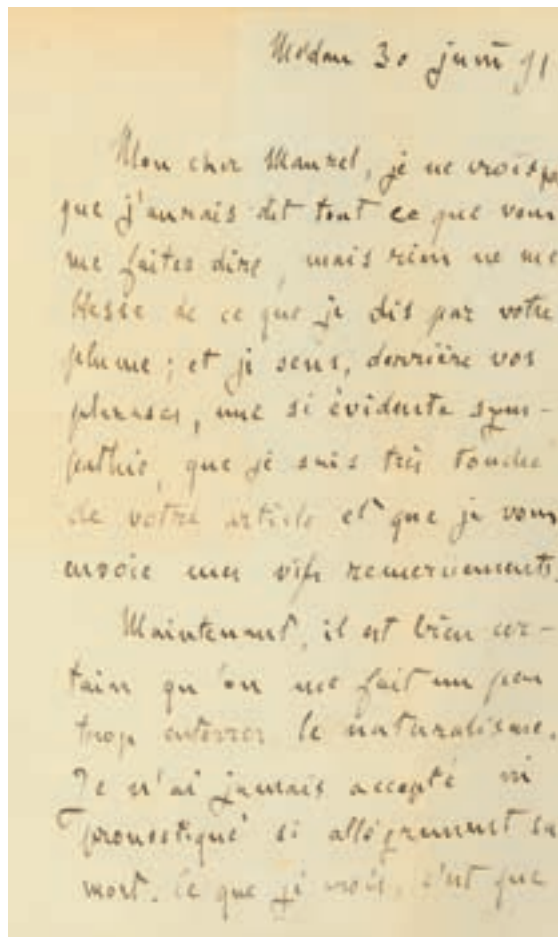 Médan 30 juin 91
Mon cher Mauzel, je ne crois pas
que j'aurais dit tout ce que vous
me faites dire, mais rien ne me
blesse de ce que je dis par votre
plume ; et je sens, derrière vos
phrases, une si évidente sym-
pathie, que je suis très touché
de votre article et que je vous
envoie mes vifs remerciements.
Maintenant, il est bien cer-
tain qu'on me fait un peu
trop enterrer le naturalisme.
Je n'ai jamais accepté ni
pronostiqué si allégrement sa
mort. Ce que je crois, c'est que